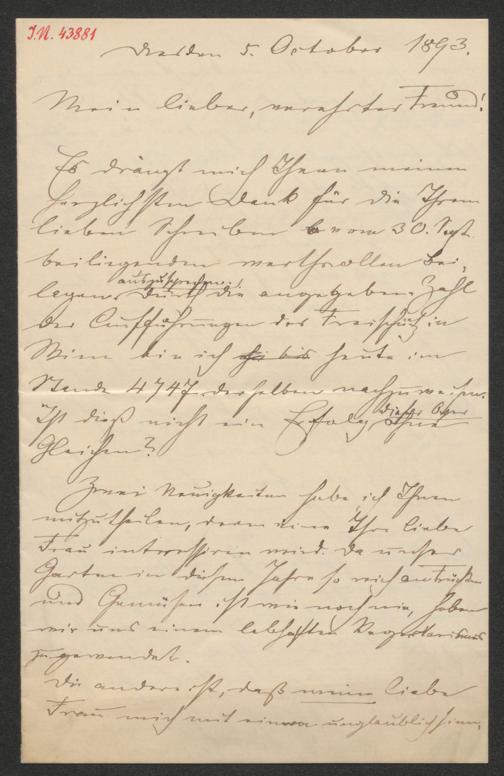 I.N. 43881
Dresden 5. October 1893.
Mein lieber, verehrter Freund!
Es drängt mich Ihnen meinen
herzlichsten Dank für die Ihrem
lieben Schreiben vom 30. Sept.
beiliegenden werthvollen Bei-
lagen auszusprechen. Durch die angegebene Zahl
der Aufführungen des Freischütz in
Wien bin ich bis heute im
Stande 4747 derselben nachzuweisen.
Ist dieß nicht ein Erfolg dieser Oper ohne
Gleichen?
Zwei Neuigkeiten habe ich Ihnen
mitzutheilen, deren eine Ihre liebe
Frau interessiren wird. Da unser
Garten in diesem Jahre so reich an Früchten
und Gemüsen ist wie noch nie, haben
wir uns einem lebhaften Vegetarismus
zugewendet.
Die andere ist, daß meine liebe
Frau mich mit einem unglaublich